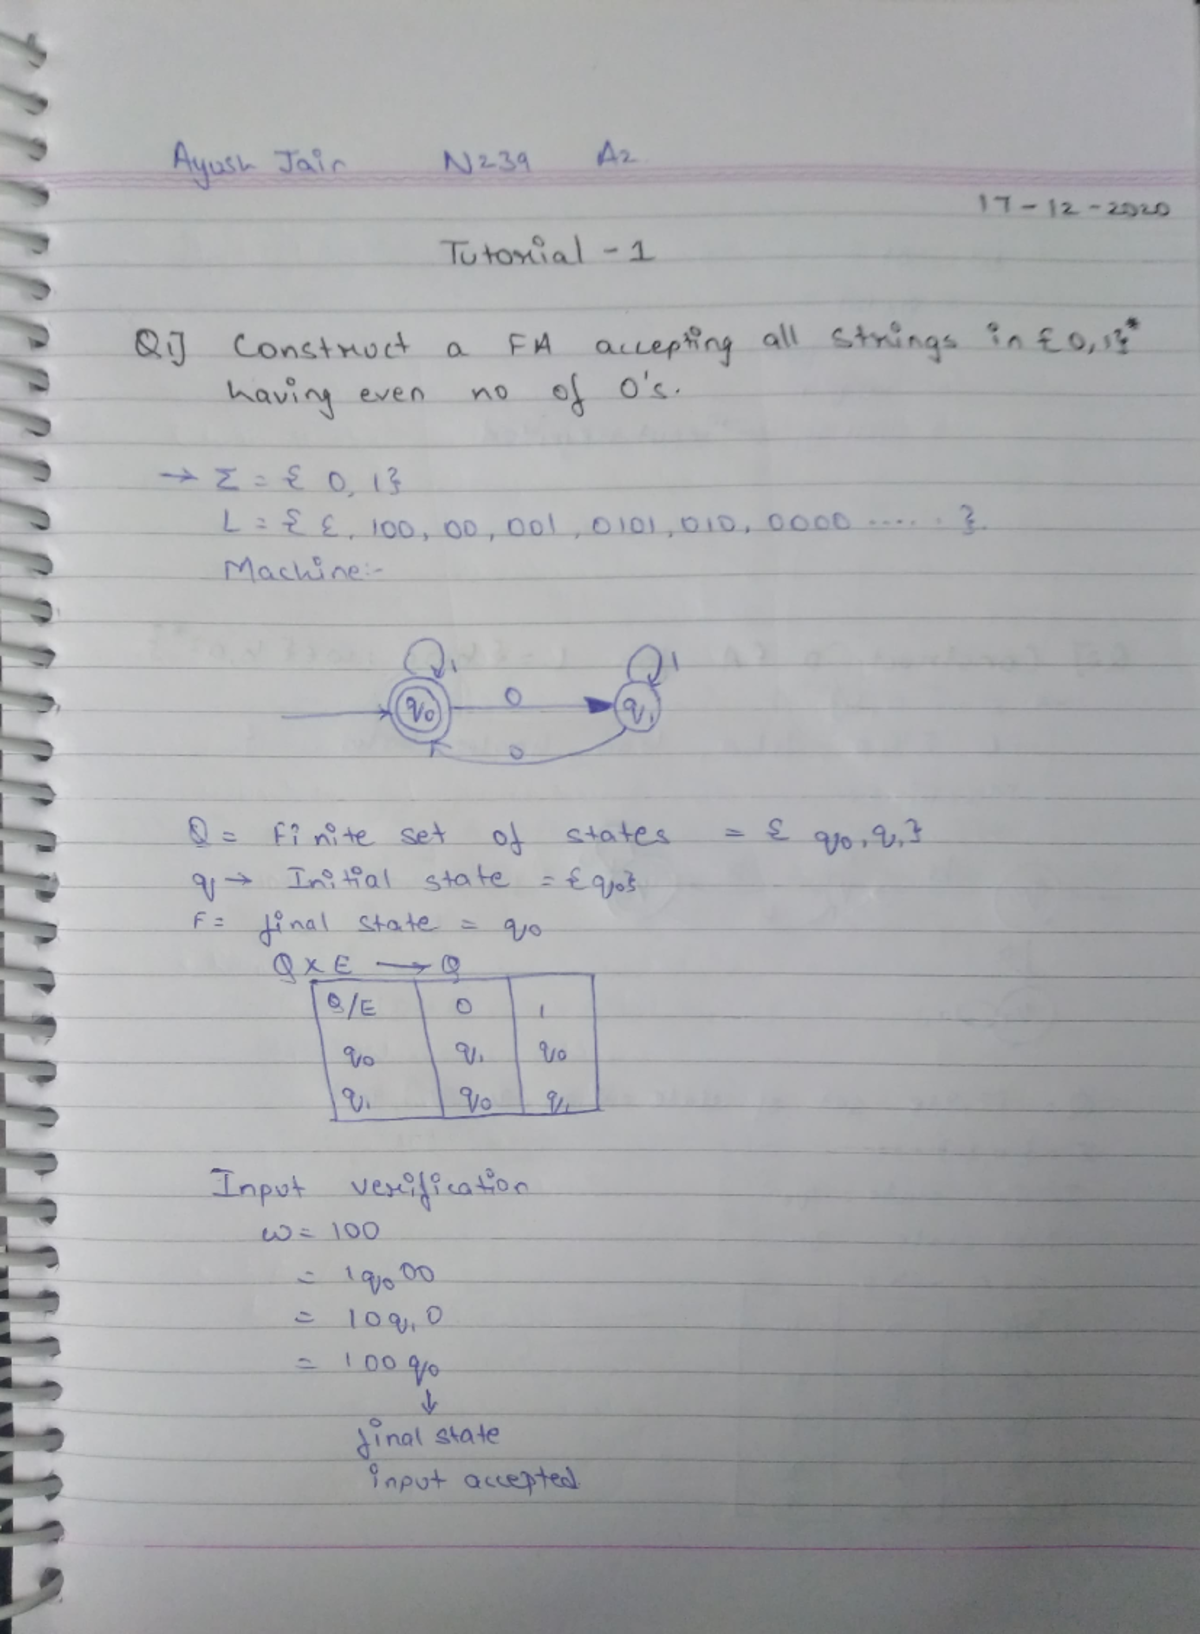 Ayush Jain N239 A2
17-12-2020
Tutorial - 1
Q1] Construct a FA accepting all strings in {0,1}*
having even no of 0's.
→ Σ = { 0, 1}
L = { ε, 100, 00, 001, 0101, 010, 0000 ..... }.
Machine:-
1 1
q0 0 q1
0
Q = Finite set of states = { q0, q1}
q → Initial state = {q0}
F = final state = q0
Q × E → Q
Q/E 0 1
q0 q1 q0
q1 q0 q1
Input verification
w = 100
= 1q000
= 10q10
= 100q0
↓
final state
input accepted